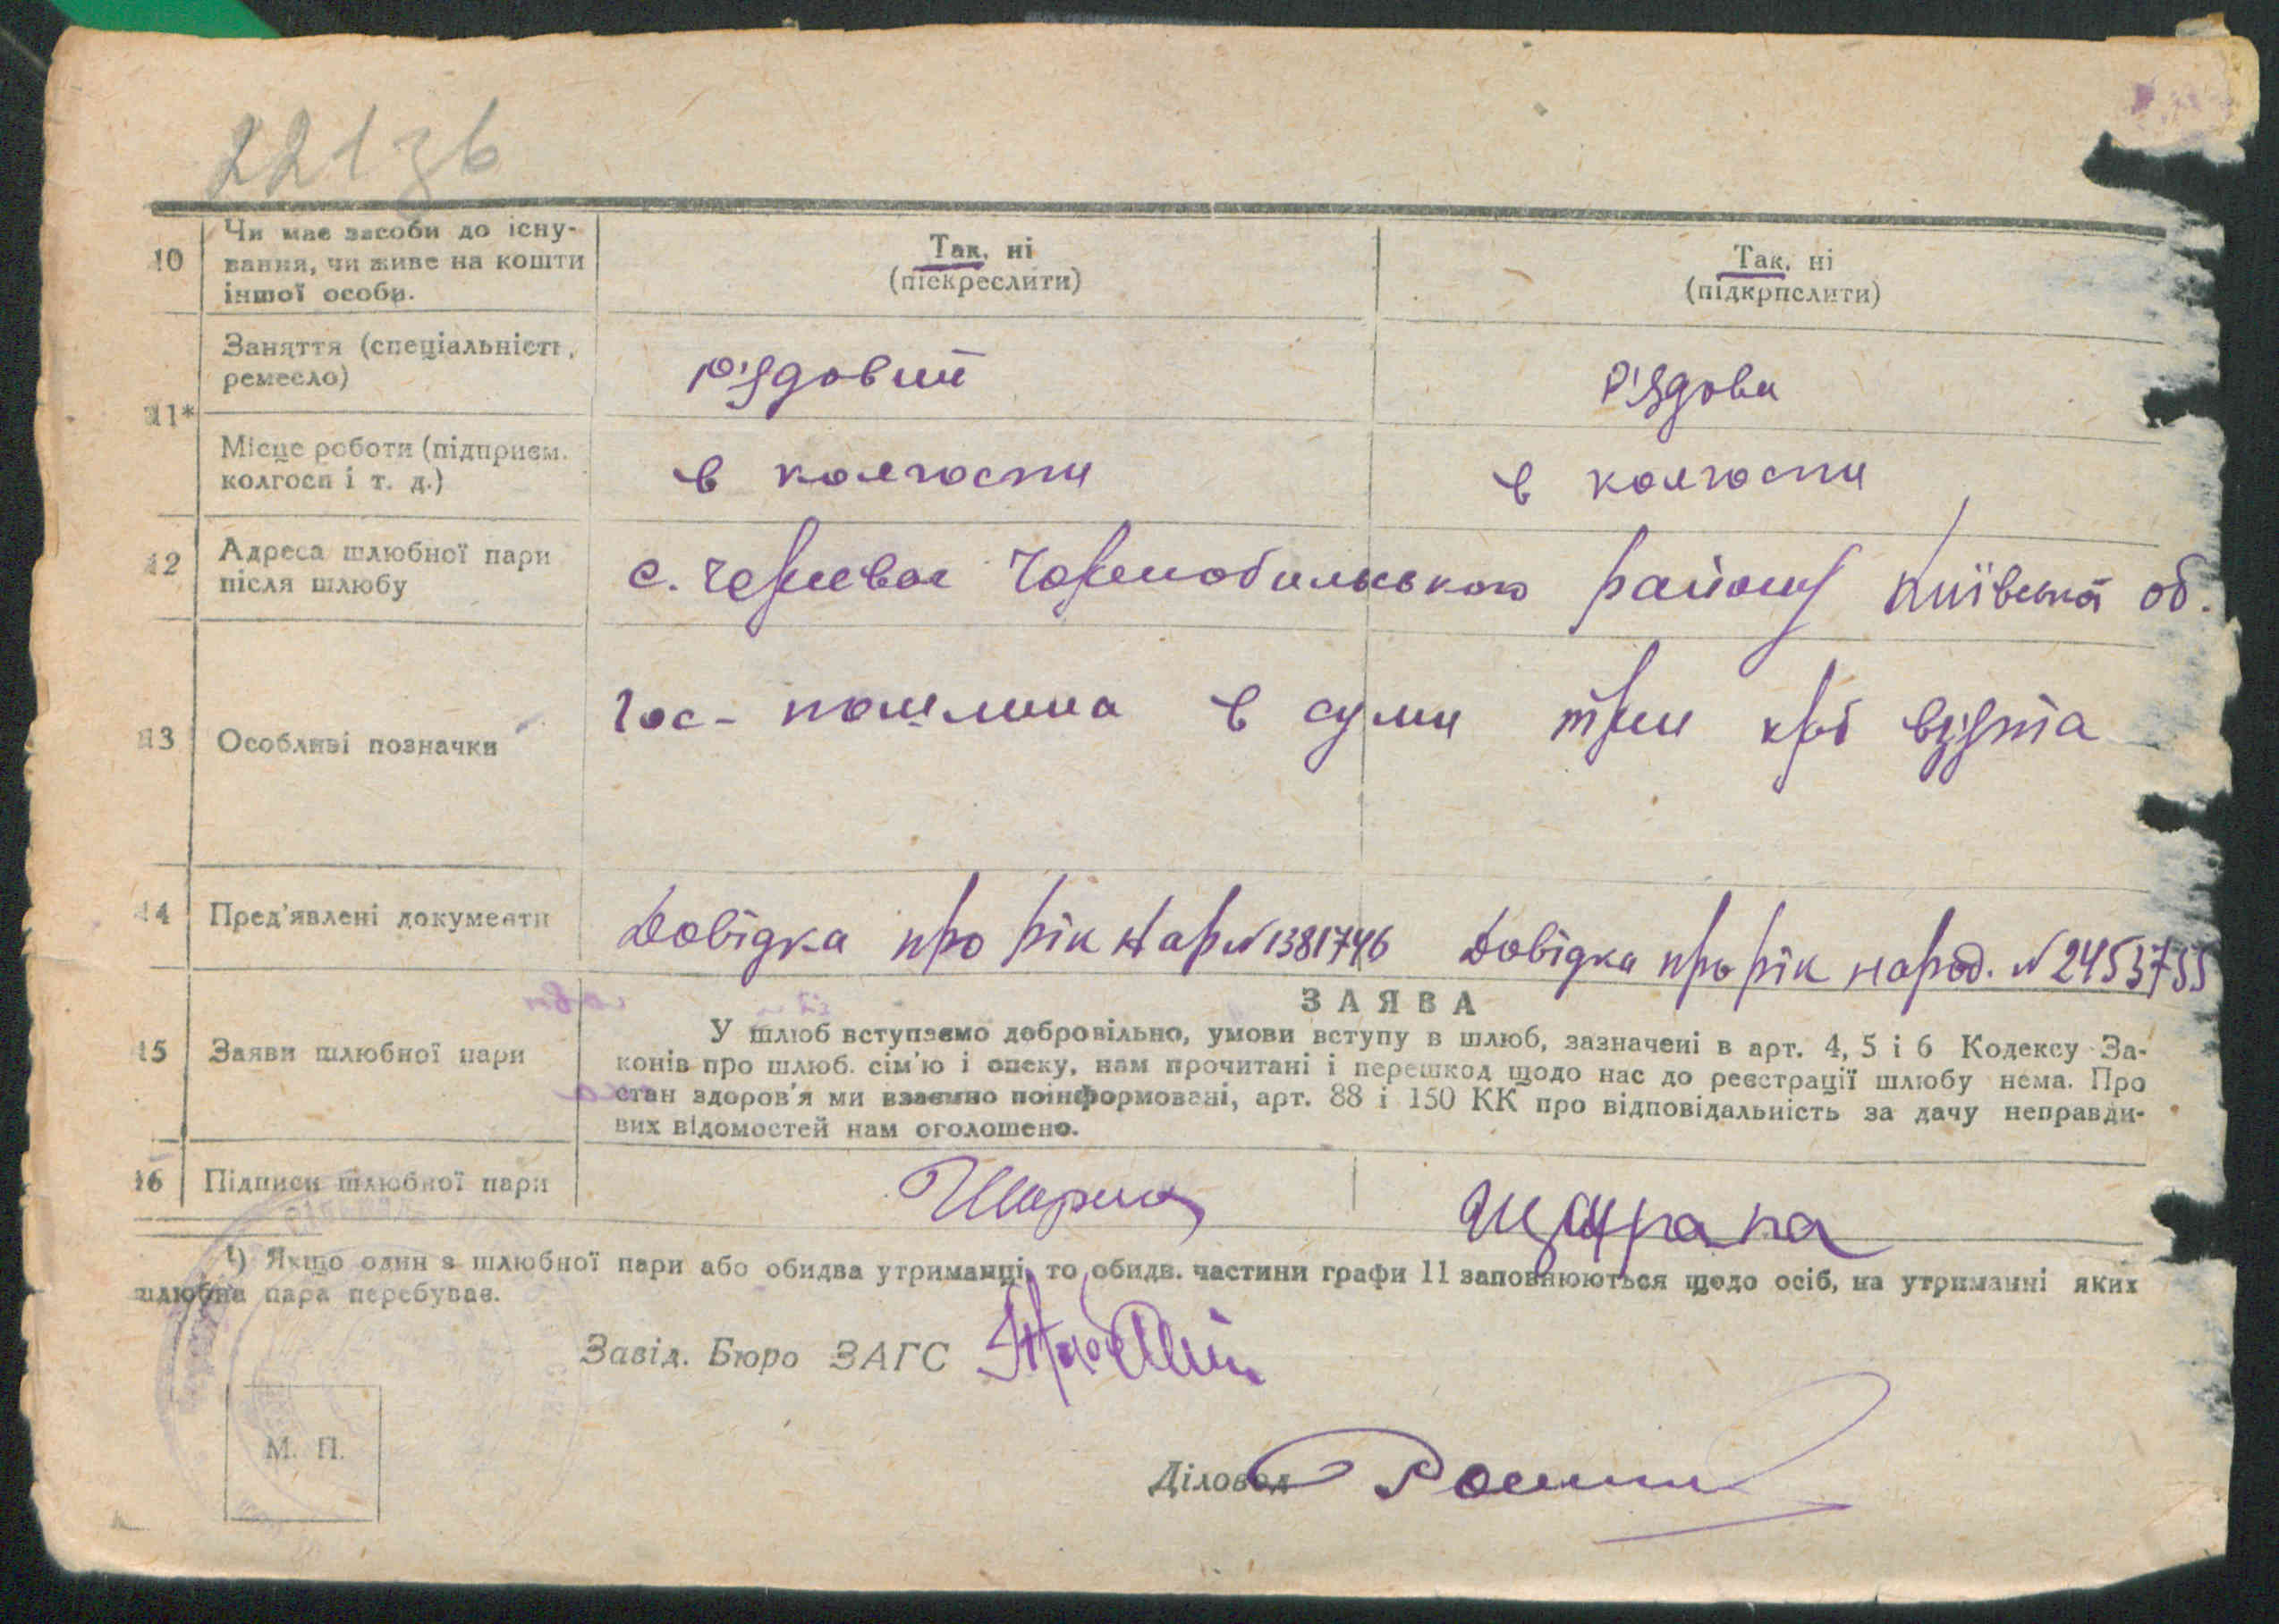 221 зв
10
Чи має засоби до існу-
вання, чи живе на кошти
іншої особи.
Так, ні
(піскреслити)
Так, ні
(підкрпслити)
11*
Заняття (спеціальність,
ремесло)
р'ядовий
р'ядова
Місце роботи (підприєм.
колгосп і т. д.)
в колгоспи
в колгоспи
12
Адреса шлюбної пари
після шлюбу
с. Череваг Чорнобильського району Київської об.
13
Особливі позначки
Гос-пошлина в суми три крб взята
14
Пред'явлені документи
Довідка про рік нар №1381746
Довідка про рік народ. №2453755
15
Заяви шлюбної пари
ЗАЯВА
У шлюб вступаємо добровільно, умови вступу в шлюб, зазначені в арт. 4, 5 і 6 Кодексу За-
конів про шлюб. сім'ю і опеку, нам прочитані і перешкод щодо нас до реєстрації шлюбу нема. Про
стан здоров'я ми взаємно поінформовані, арт. 88 і 150 КК про відповідальність за дачу неправди-
вих відомостей нам оголошено.
16
Підписи шлюбної пари
¹) Якщо один з шлюбної пари або обидва утриманці, то обидв. частини графи 11 заповнюються щодо осіб, на утриманні яких
шлюбна пара перебуває.
Завід. Бюро ЗАГС
Діловод
М. П.